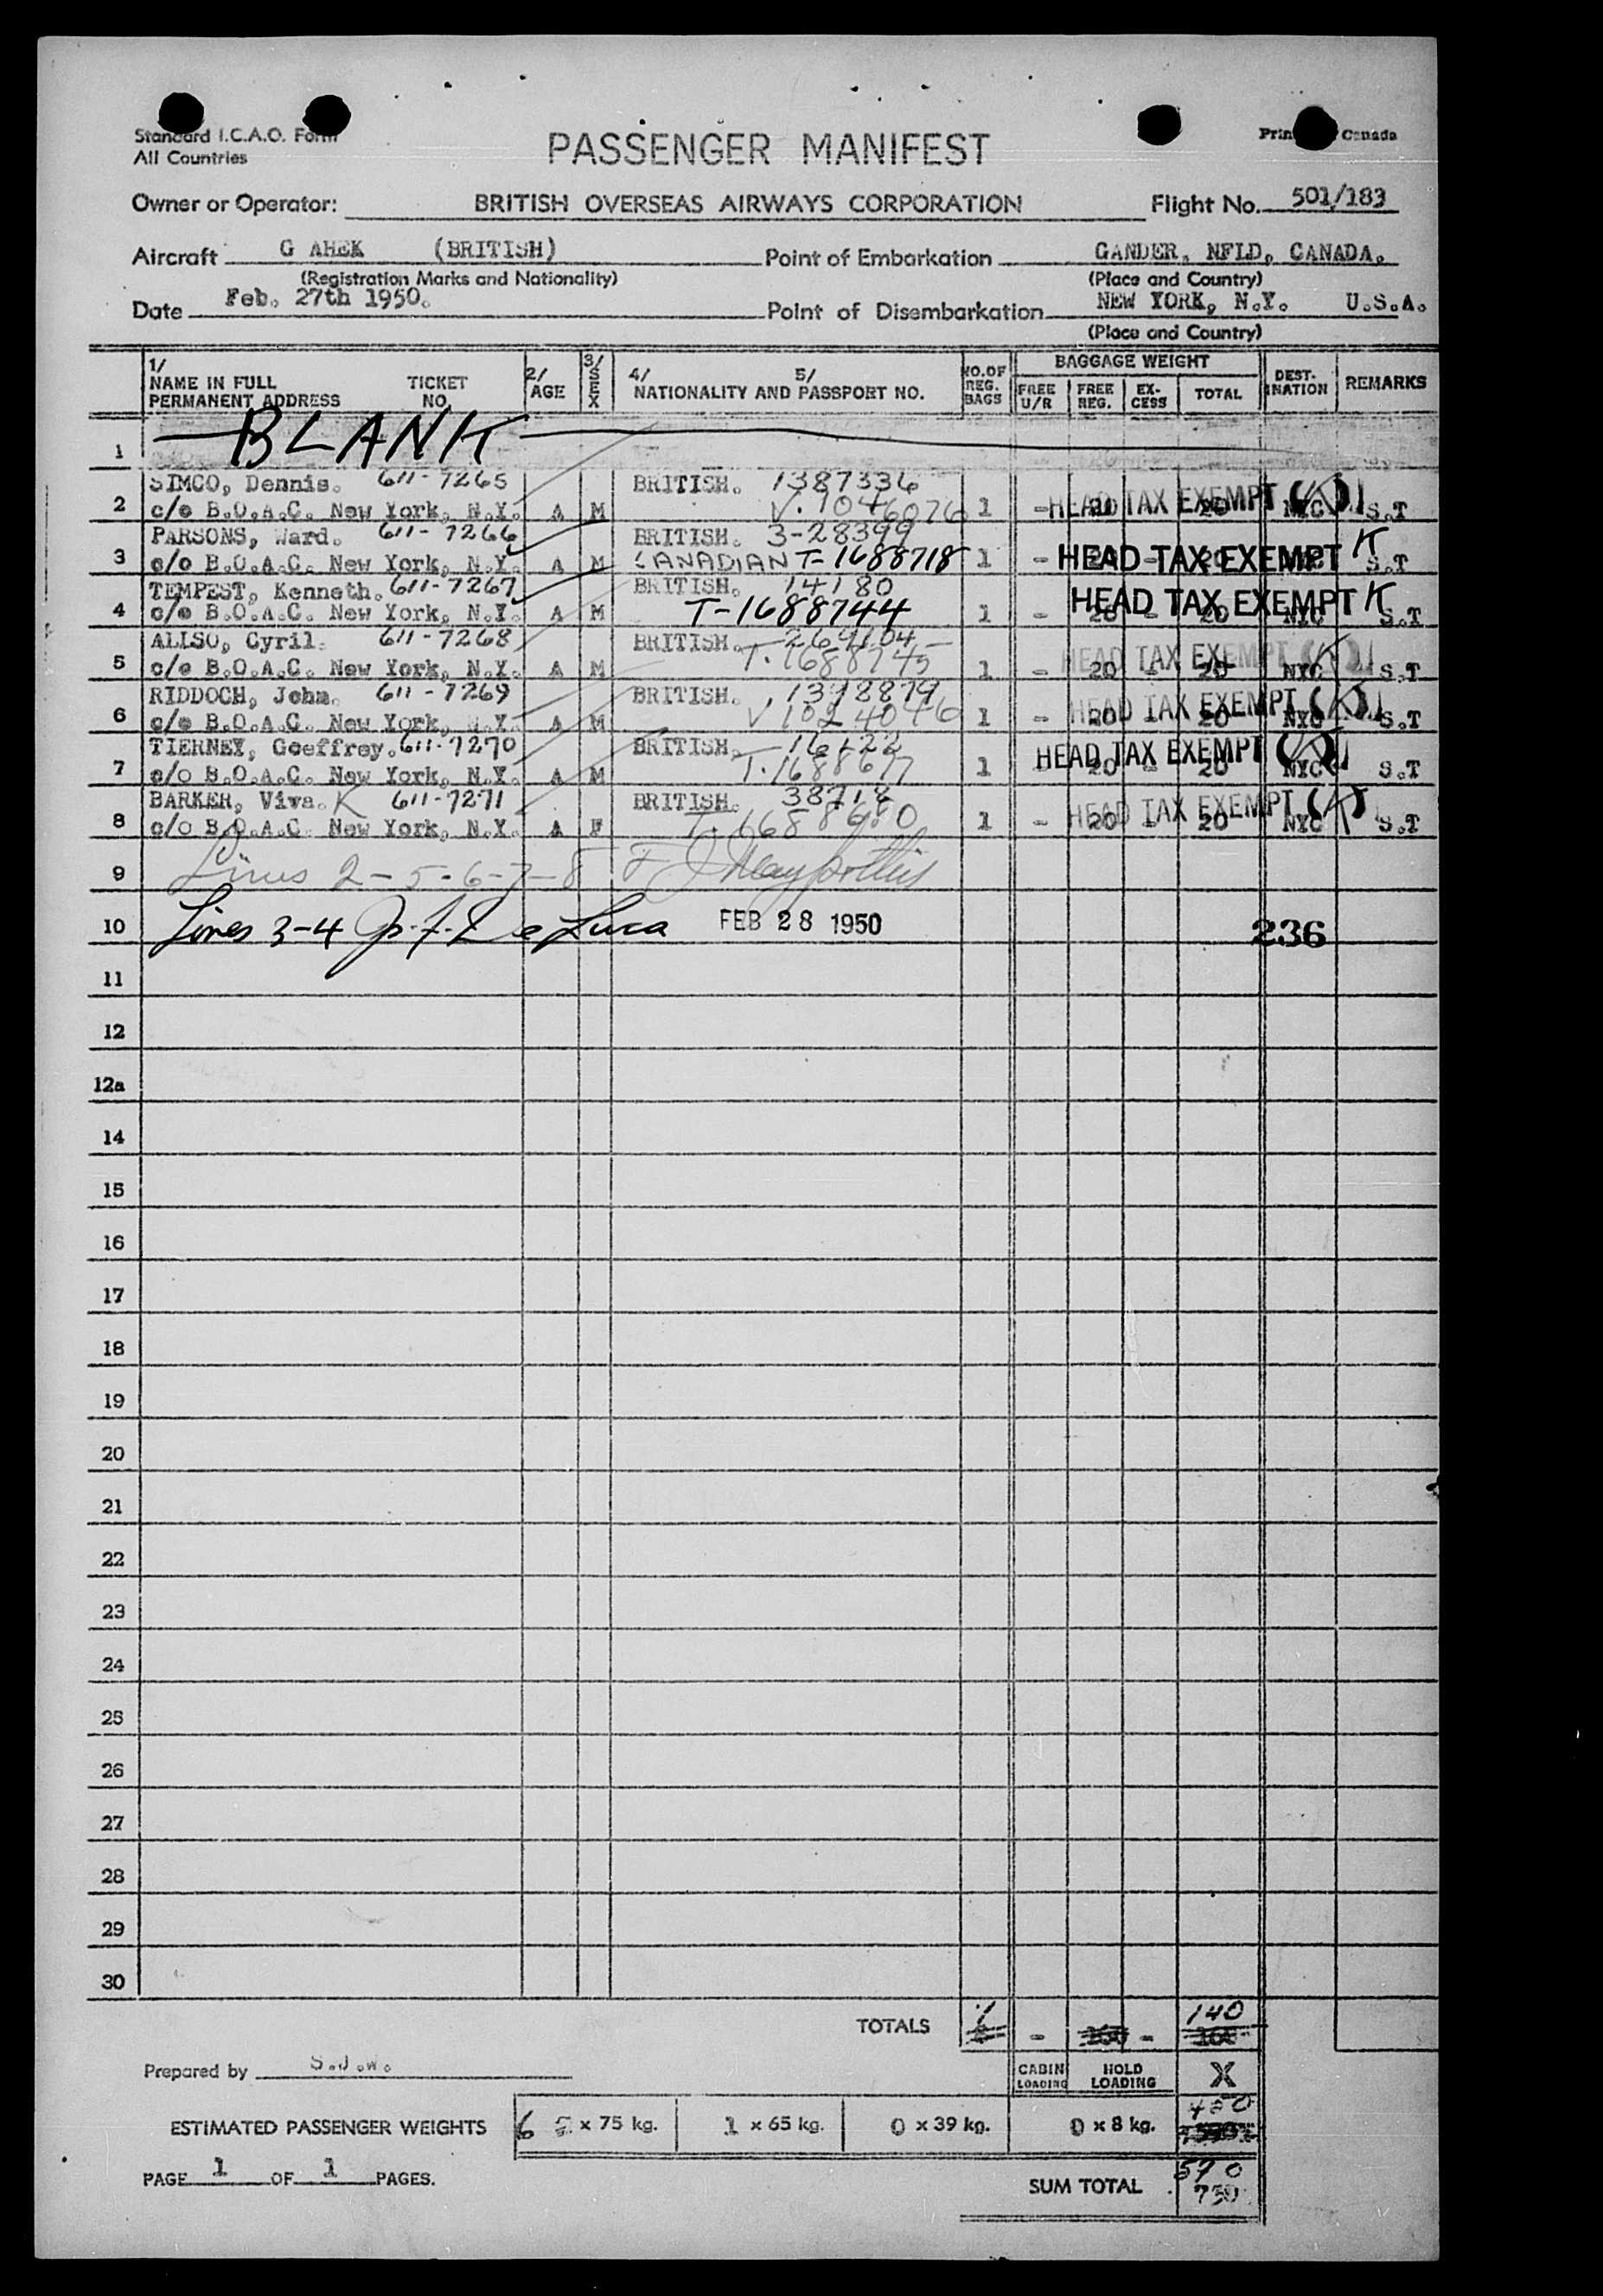 Standard I.C.A.O. Form
All Countries
PASSENGER MANIFEST
Canada
Owner or Operator: BRITISH OVERSEAS AIRWAYS CORPORATION Flight No. 501/183
Aircraft G AHEK (BRITISH) Point of Embarkation GANDER, NFLD, CANADA.
(Registration Marks and Nationality) (Place and Country)
Date Feb. 27th 1950. Point of Disembarkation NEW YORK, N.Y. U.S.A.
(Place and Country)
1/ NAME IN FULL PERMANENT ADDRESS TICKET NO. 2/ AGE 3/ SEX 4/ 5/ NATIONALITY AND PASSPORT NO. NO. OF REG. BAGS BAGGAGE WEIGHT FREE U/R FREE REG. EX-CESS TOTAL DEST-INATION REMARKS
1 BLANK
SIMCO, Dennis. 611-7265 BRITISH. 1387336
2 c/o B.O.A.C. New York, N.Y. A M V.1046076 1 - HEAD TAX EXEMPT (K) 20 20 NYC S.T
PARSONS, Ward. 611-7266 BRITISH. 3-28399
3 c/o B.O.A.C. New York, N.Y. A M CANADIAN T-1688718 1 - HEAD TAX EXEMPT K S.T
TEMPEST, Kenneth. 611-7267 BRITISH. 14180
4 c/o B.O.A.C. New York, N.Y. A M T-1688744 1 - HEAD TAX EXEMPT K 20 - 20 NYC S.T
ALLSO, Cyril. 611-7268 BRITISH. 264104
5 c/o B.O.A.C. New York, N.Y. A M T.1688745 1 - HEAD TAX EXEMPT (K) 20 - 20 NYC S.T
RIDDOCH, John. 611-7269 BRITISH. 1398879
6 c/o B.O.A.C. New York, N.Y. A M V1024046 1 - HEAD TAX EXEMPT (K) 20 - 20 NYC S.T
TIERNEY, Geoffrey. 611-7270 BRITISH. 16422
7 c/o B.O.A.C. New York, N.Y. A M T.1688677 1 HEAD TAX EXEMPT (K) 20 - 20 NYC S.T
BARKER, Viva. K 611-7271 BRITISH. 38718
8 c/o B.O.A.C. New York, N.Y. A F T.1688680 1 - HEAD TAX EXEMPT (K) 20 - 20 NYC S.T
9 Lines 2-5-6-7-8
10 Lines 3-4 De Luca FEB 28 1950 236
11
12
12a
14
15
16
17
18
19
20
21
22
23
24
25
26
27
28
29
30
TOTALS 7 - 160 - 140 160
Prepared by S.J.W. CABIN LOADING HOLD LOADING X
450
ESTIMATED PASSENGER WEIGHTS 6 x 75 kg. 1 x 65 kg. 0 x 39 kg. 0 x 8 kg.
PAGE 1 OF 1 PAGES. SUM TOTAL 590 750